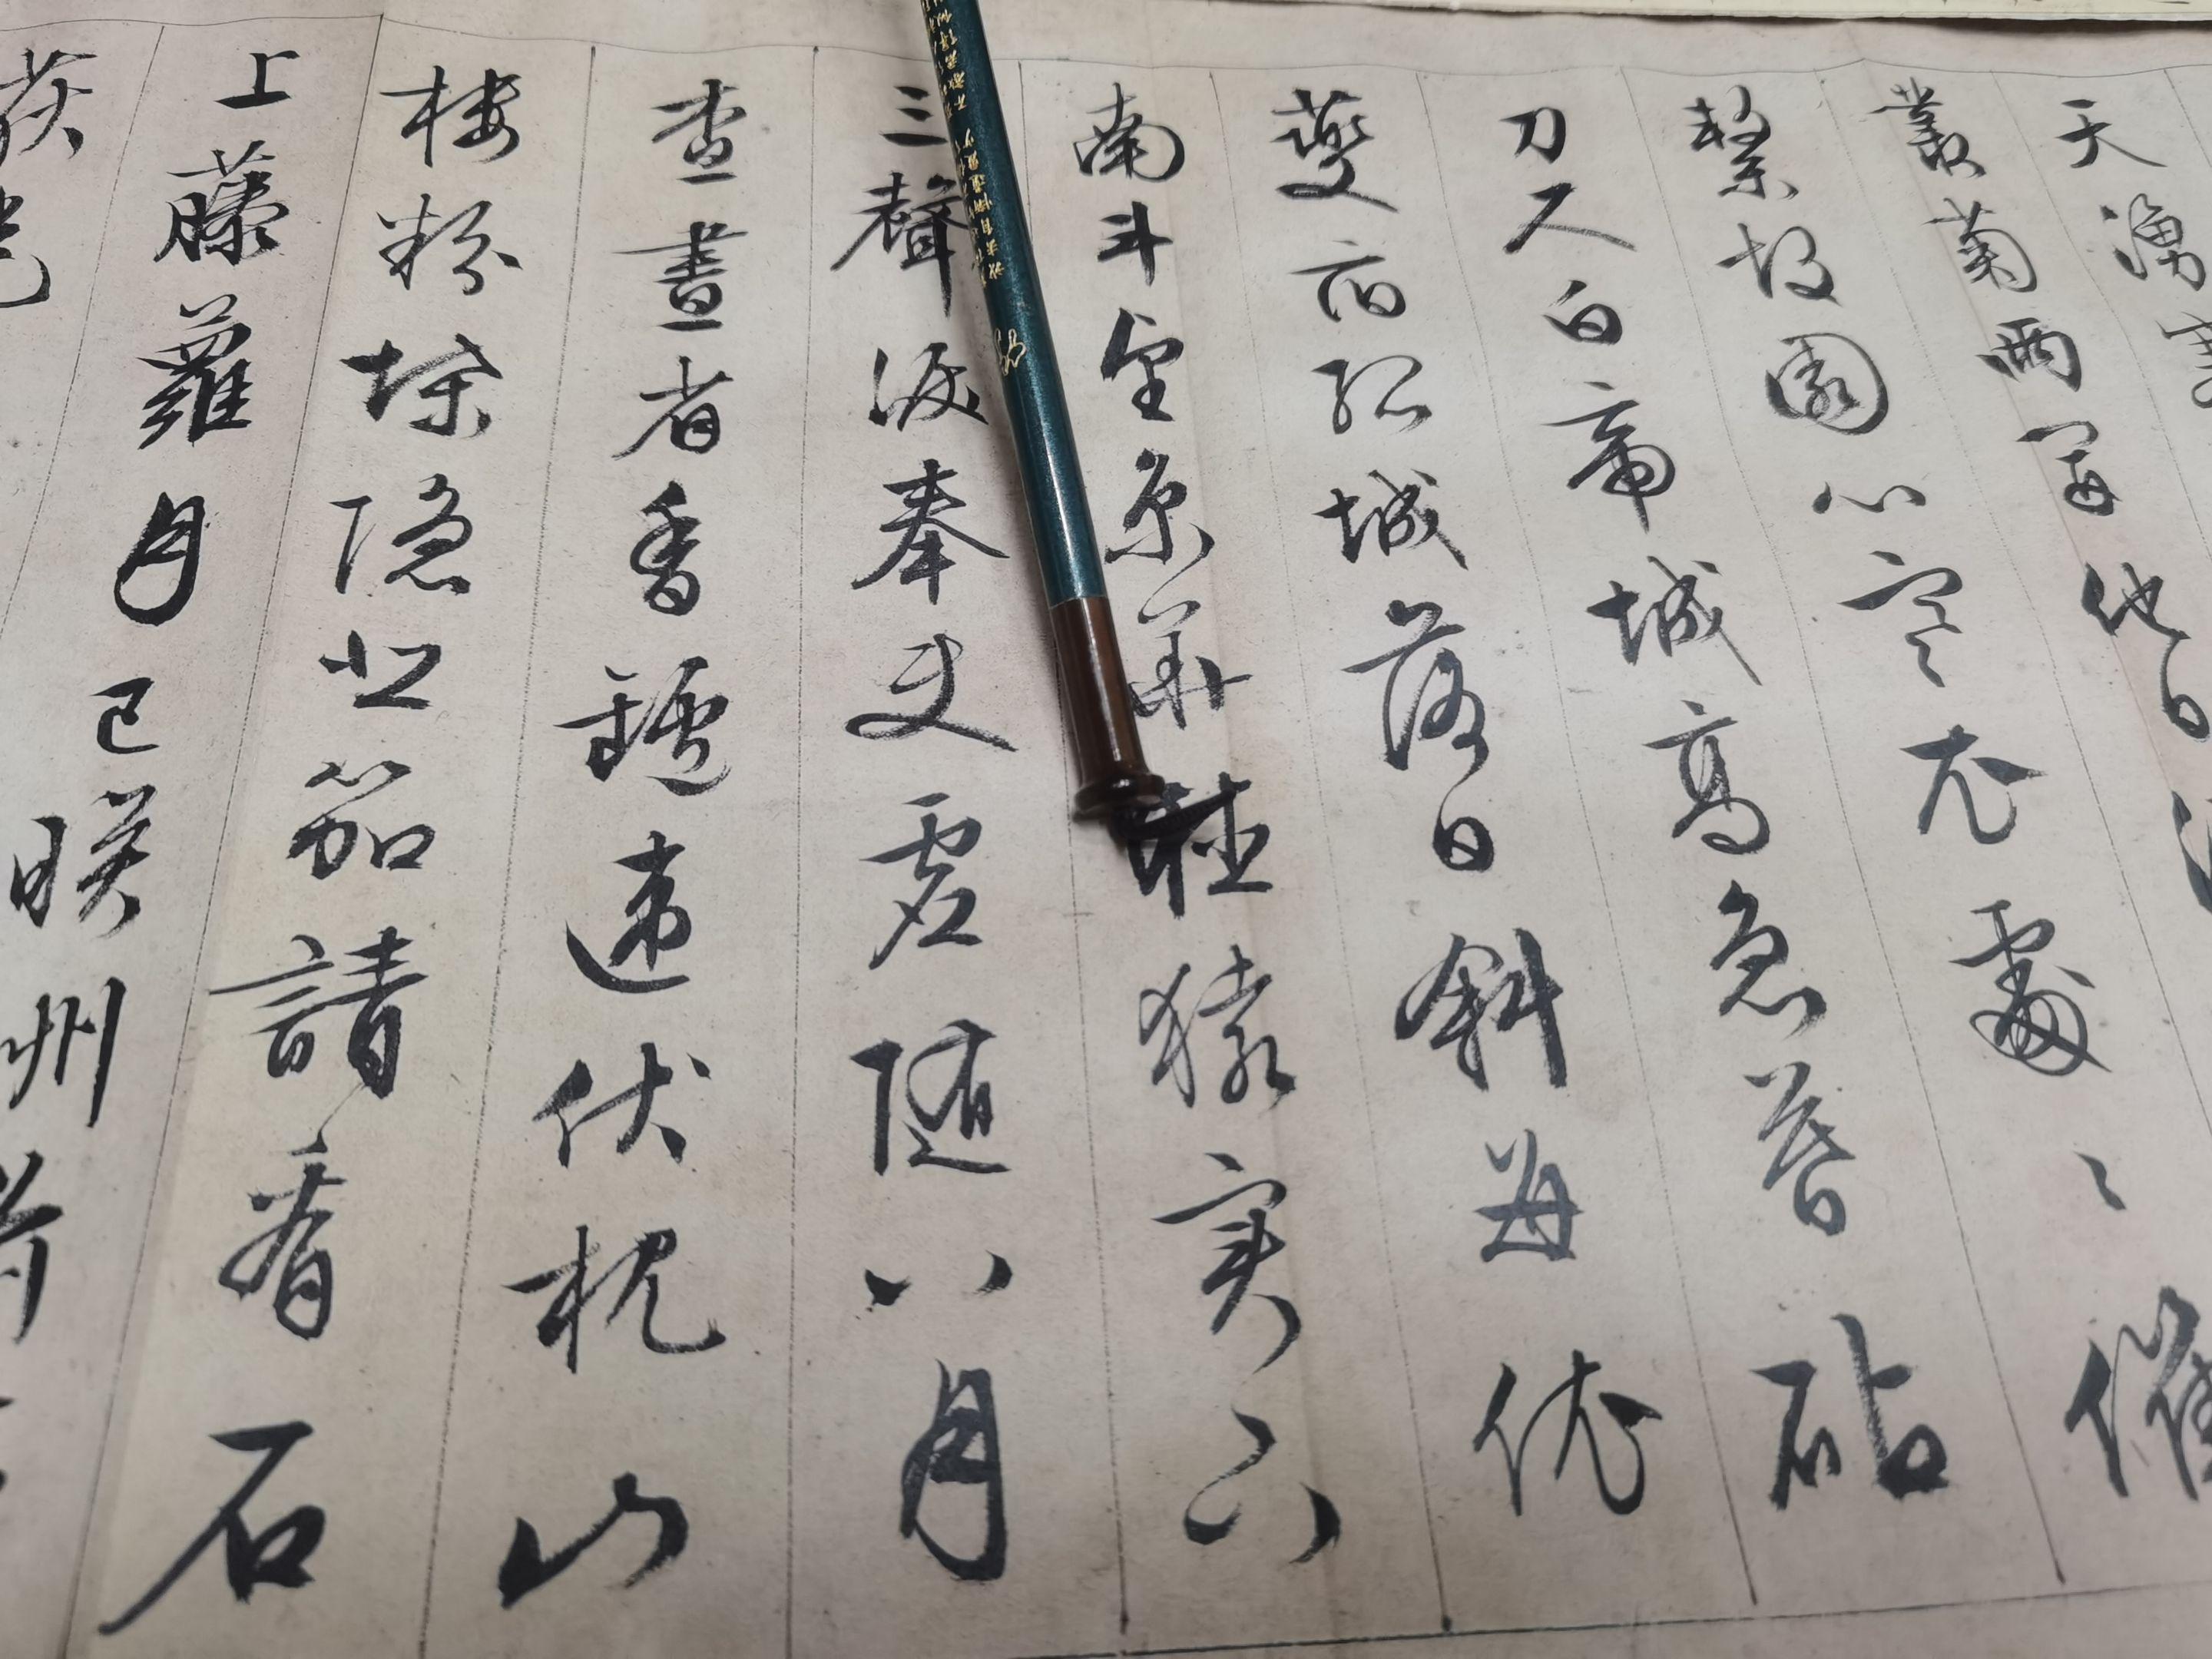 天湧塞
叢菊兩開他日淚
繫故園心寒衣處〻催
刀尺白帝城高急暮砧
夔府孤城落日斜每依
南斗望京華聽猿實下
三聲淚奉使虛随八月
查畫省香鑪違伏枕山
樓粉堞隠悲笳請看石
上藤蘿月已映州前
荻花